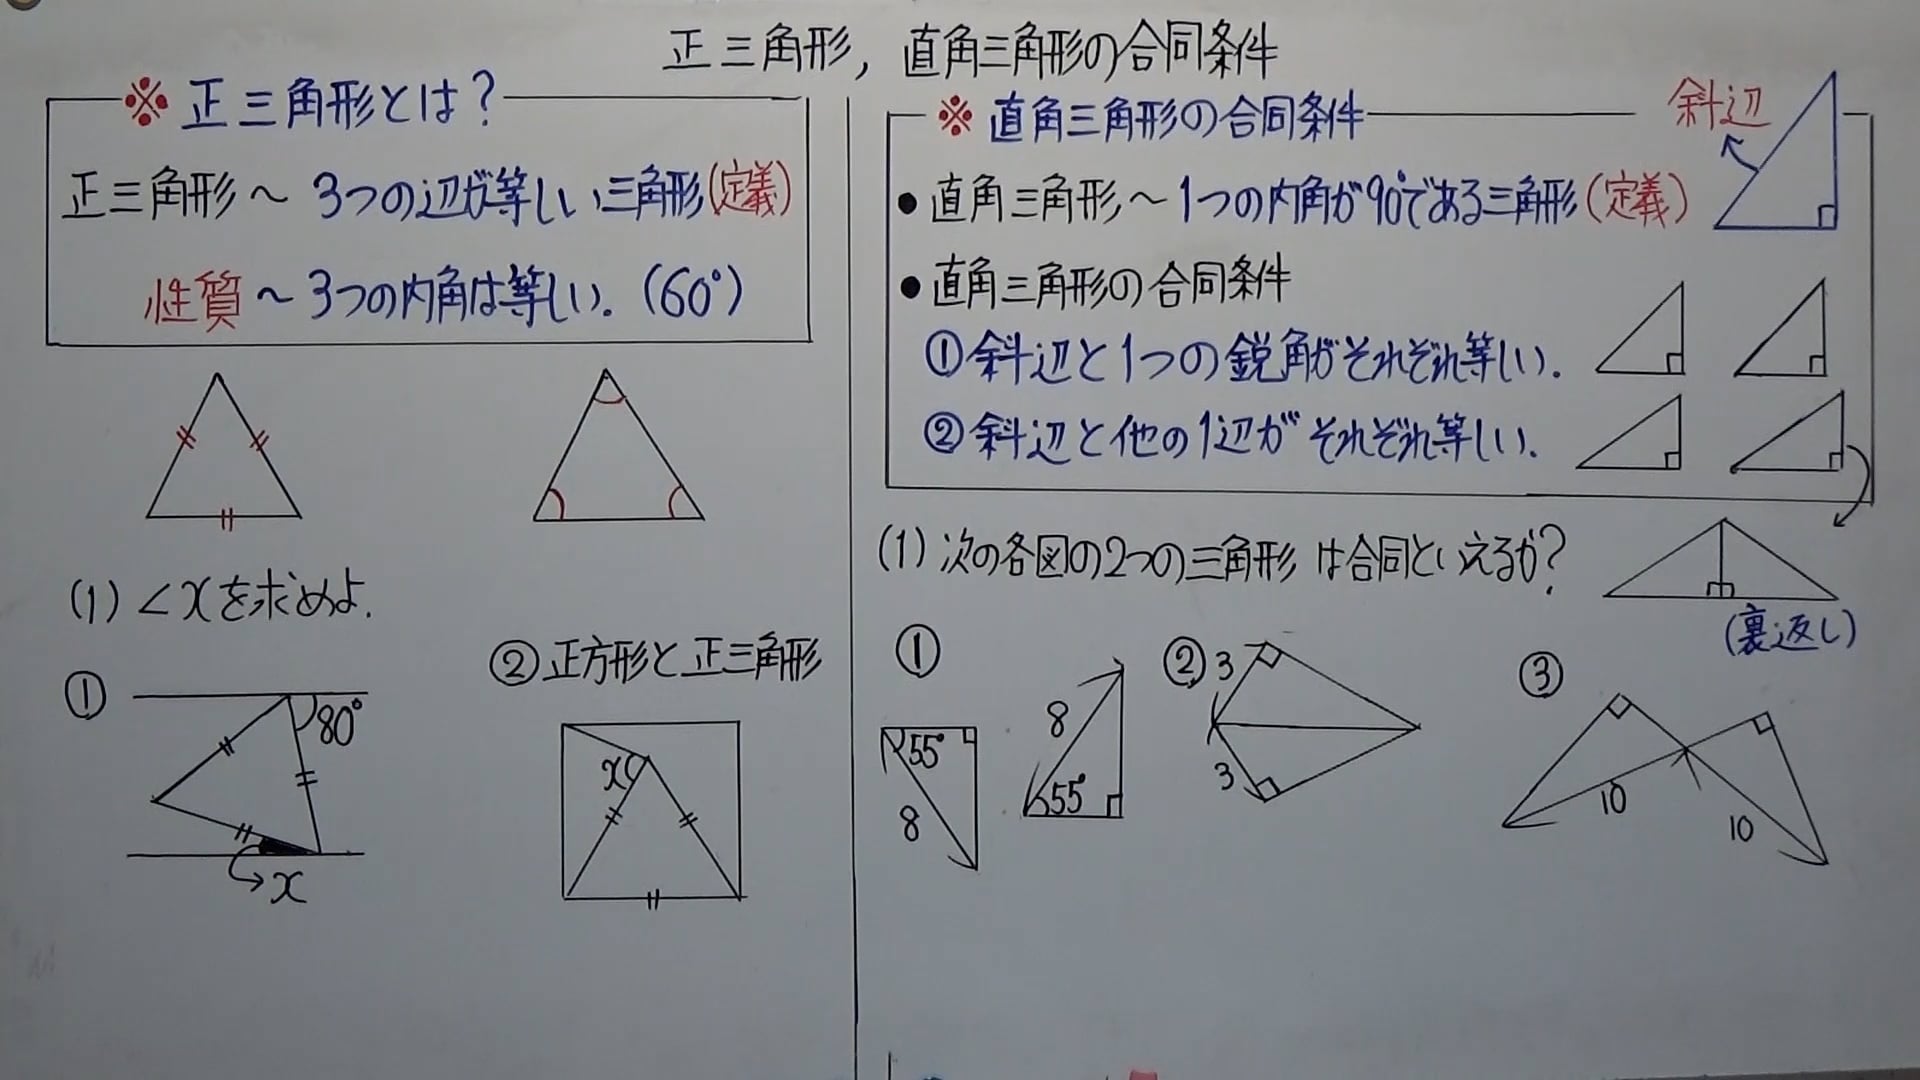 正三角形, 直角三角形の合同条件
※ 正三角形とは?
正三角形 ～ 3つの辺が等しい三角形(定義)
性質 ～ 3つの内角は等しい. (60°)
(1) ∠xを求めよ.
①
80°
x
② 正方形と正三角形
x
※ 直角三角形の合同条件
斜辺
● 直角三角形 ～ 1つの内角が90°である三角形(定義)
● 直角三角形の合同条件
① 斜辺と1つの鋭角がそれぞれ等しい.
② 斜辺と他の1辺がそれぞれ等しい.
(裏返し)
(1) 次の各図の2つの三角形は合同といえるか?
①
55°
8
8
55°
②
3
3
③
10
10